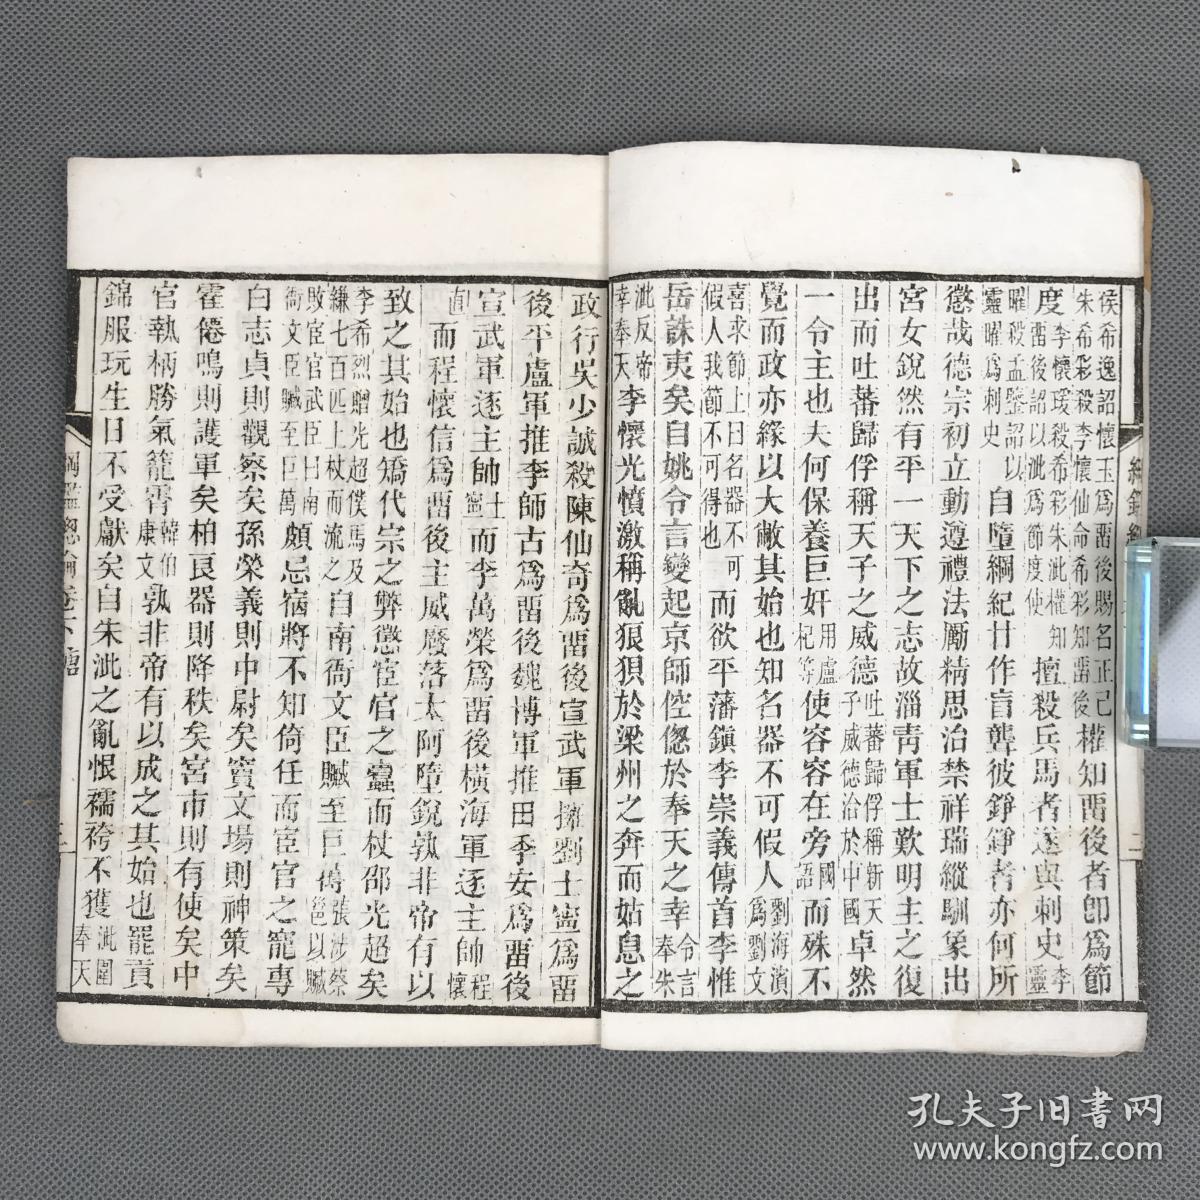 侯希逸詔懷玉為畱後賜名正己權知畱後者卽為節
朱希彩殺李懷仙命希彩知畱後
度李懷瑗殺希彩朱泚權知擅殺兵馬者遂與刺史李
畱後詔以泚為節度使靈
曜殺孟鑒詔以自墮綱紀廿作言聾彼錚錚者亦何所
靈曜為刺史
懲哉德宗初立動遵禮法厲精思治禁祥瑞縱馴象出
宮女銳然有平一天下之志故淄靑軍士歎明主之復
出而吐蕃歸俘稱天子之威德吐蕃歸俘稱新天卓然
子威德洽於中國
一令主也夫何保養巨奸用盧使容容在旁國而殊不
杞等語
覺而政亦緣以大敝其始也知名器不可假人劉海濱
為劉文
喜求節上曰名器不可而欲平藩鎭李崇義傳首李惟
假人我節不可得也
岳誅夷矣自姚令言變起京師倥傯於奉天之幸令言
奉朱
泚反帝李懷光憤激稱亂狼狽於梁州之奔而姑息之
幸奉天
政行吳少誠殺陳仙奇為畱後宣武軍擁劉士寗為畱
後平盧軍推李師古為畱後魏博軍推田季安為畱後
宣武軍逐主帥士而李萬榮為畱後橫海軍逐主帥程
寗懷
直而程懷信為畱後主威廢落太阿墮銳孰非帝有以
致之其始也矯代宗之弊懲宦官之蠹而杖邵光超矣
李希烈贈光超僕馬及自南衙文臣贓至巨萬張涉蔡
縑七百匹上杖而流之邕以贓
敗宦官武臣曰南頗忌宿將不知倚任而宦官之寵專
衙文臣贓至巨萬
白志貞則觀察矣孫榮義則中尉矣竇文場則神策矣
霍僊鳴則護軍矣柏良器則降秩矣宮市則有使矣中
官執柄勝氣籠霄韓伯孰非帝有以成之其始也罷貢
康文
錦服玩生日不受獻矣自朱泚之亂恨襦袴不獲泚圍
奉天
綱鑑總論卷下 唐
三
二
孔夫子旧书网
www.kongfz.com